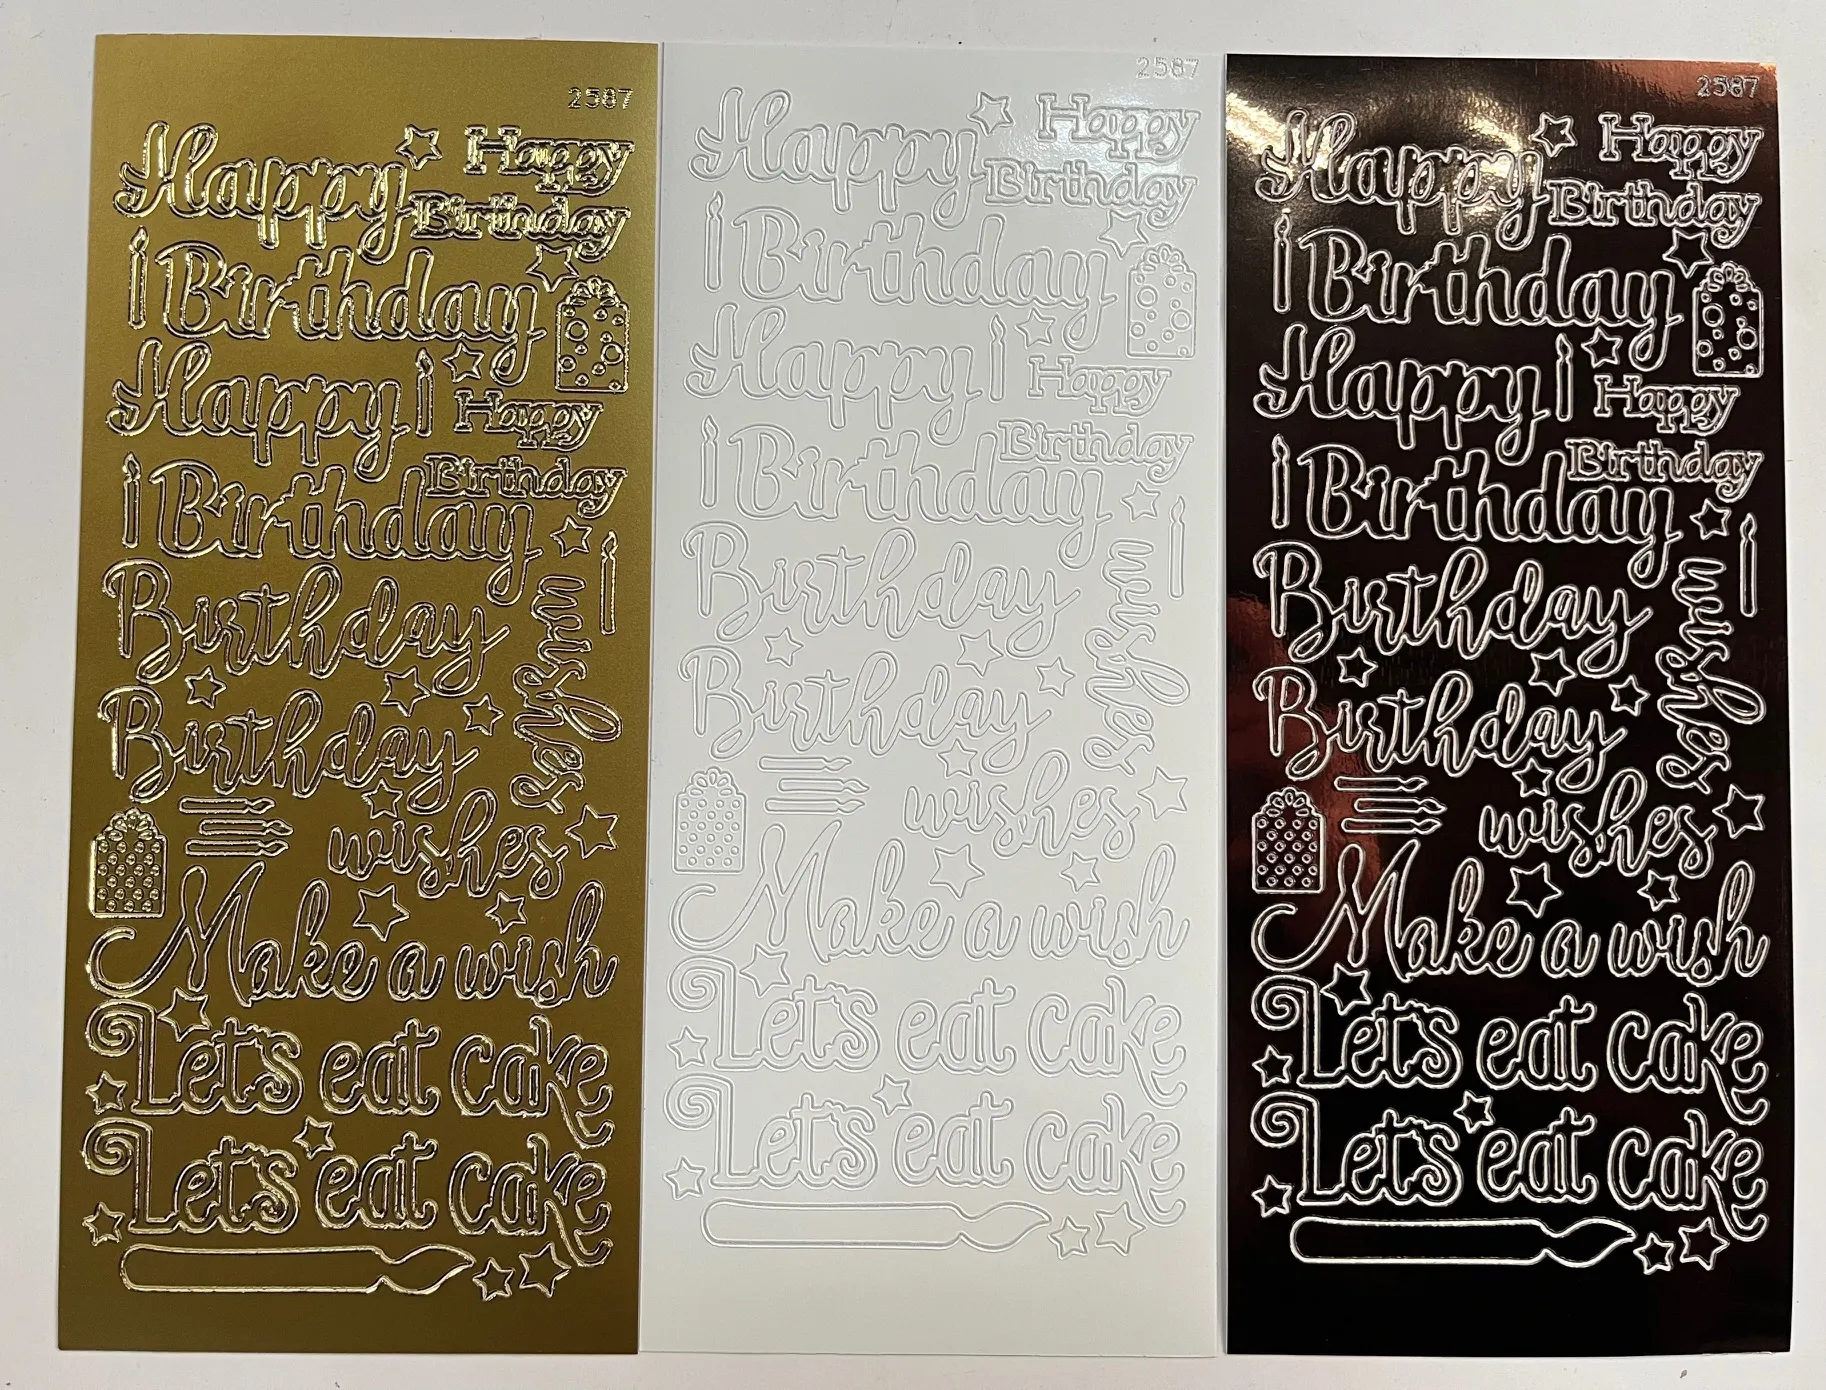 2587
Happy
Happy
Birthday
Birthday
Happy
Happy
Birthday
Birthday
Birthday
wishes
Birthday
wishes
Make a wish
Let's eat cake
Let's eat cake
2587
Happy
Happy
Birthday
Birthday
Happy
Happy
Birthday
Birthday
Birthday
wishes
Birthday
wishes
Make a wish
Let's eat cake
Let's eat cake
2587
Happy
Happy
Birthday
Birthday
Happy
Happy
Birthday
Birthday
Birthday
wishes
Birthday
wishes
Make a wish
Let's eat cake
Let's eat cake